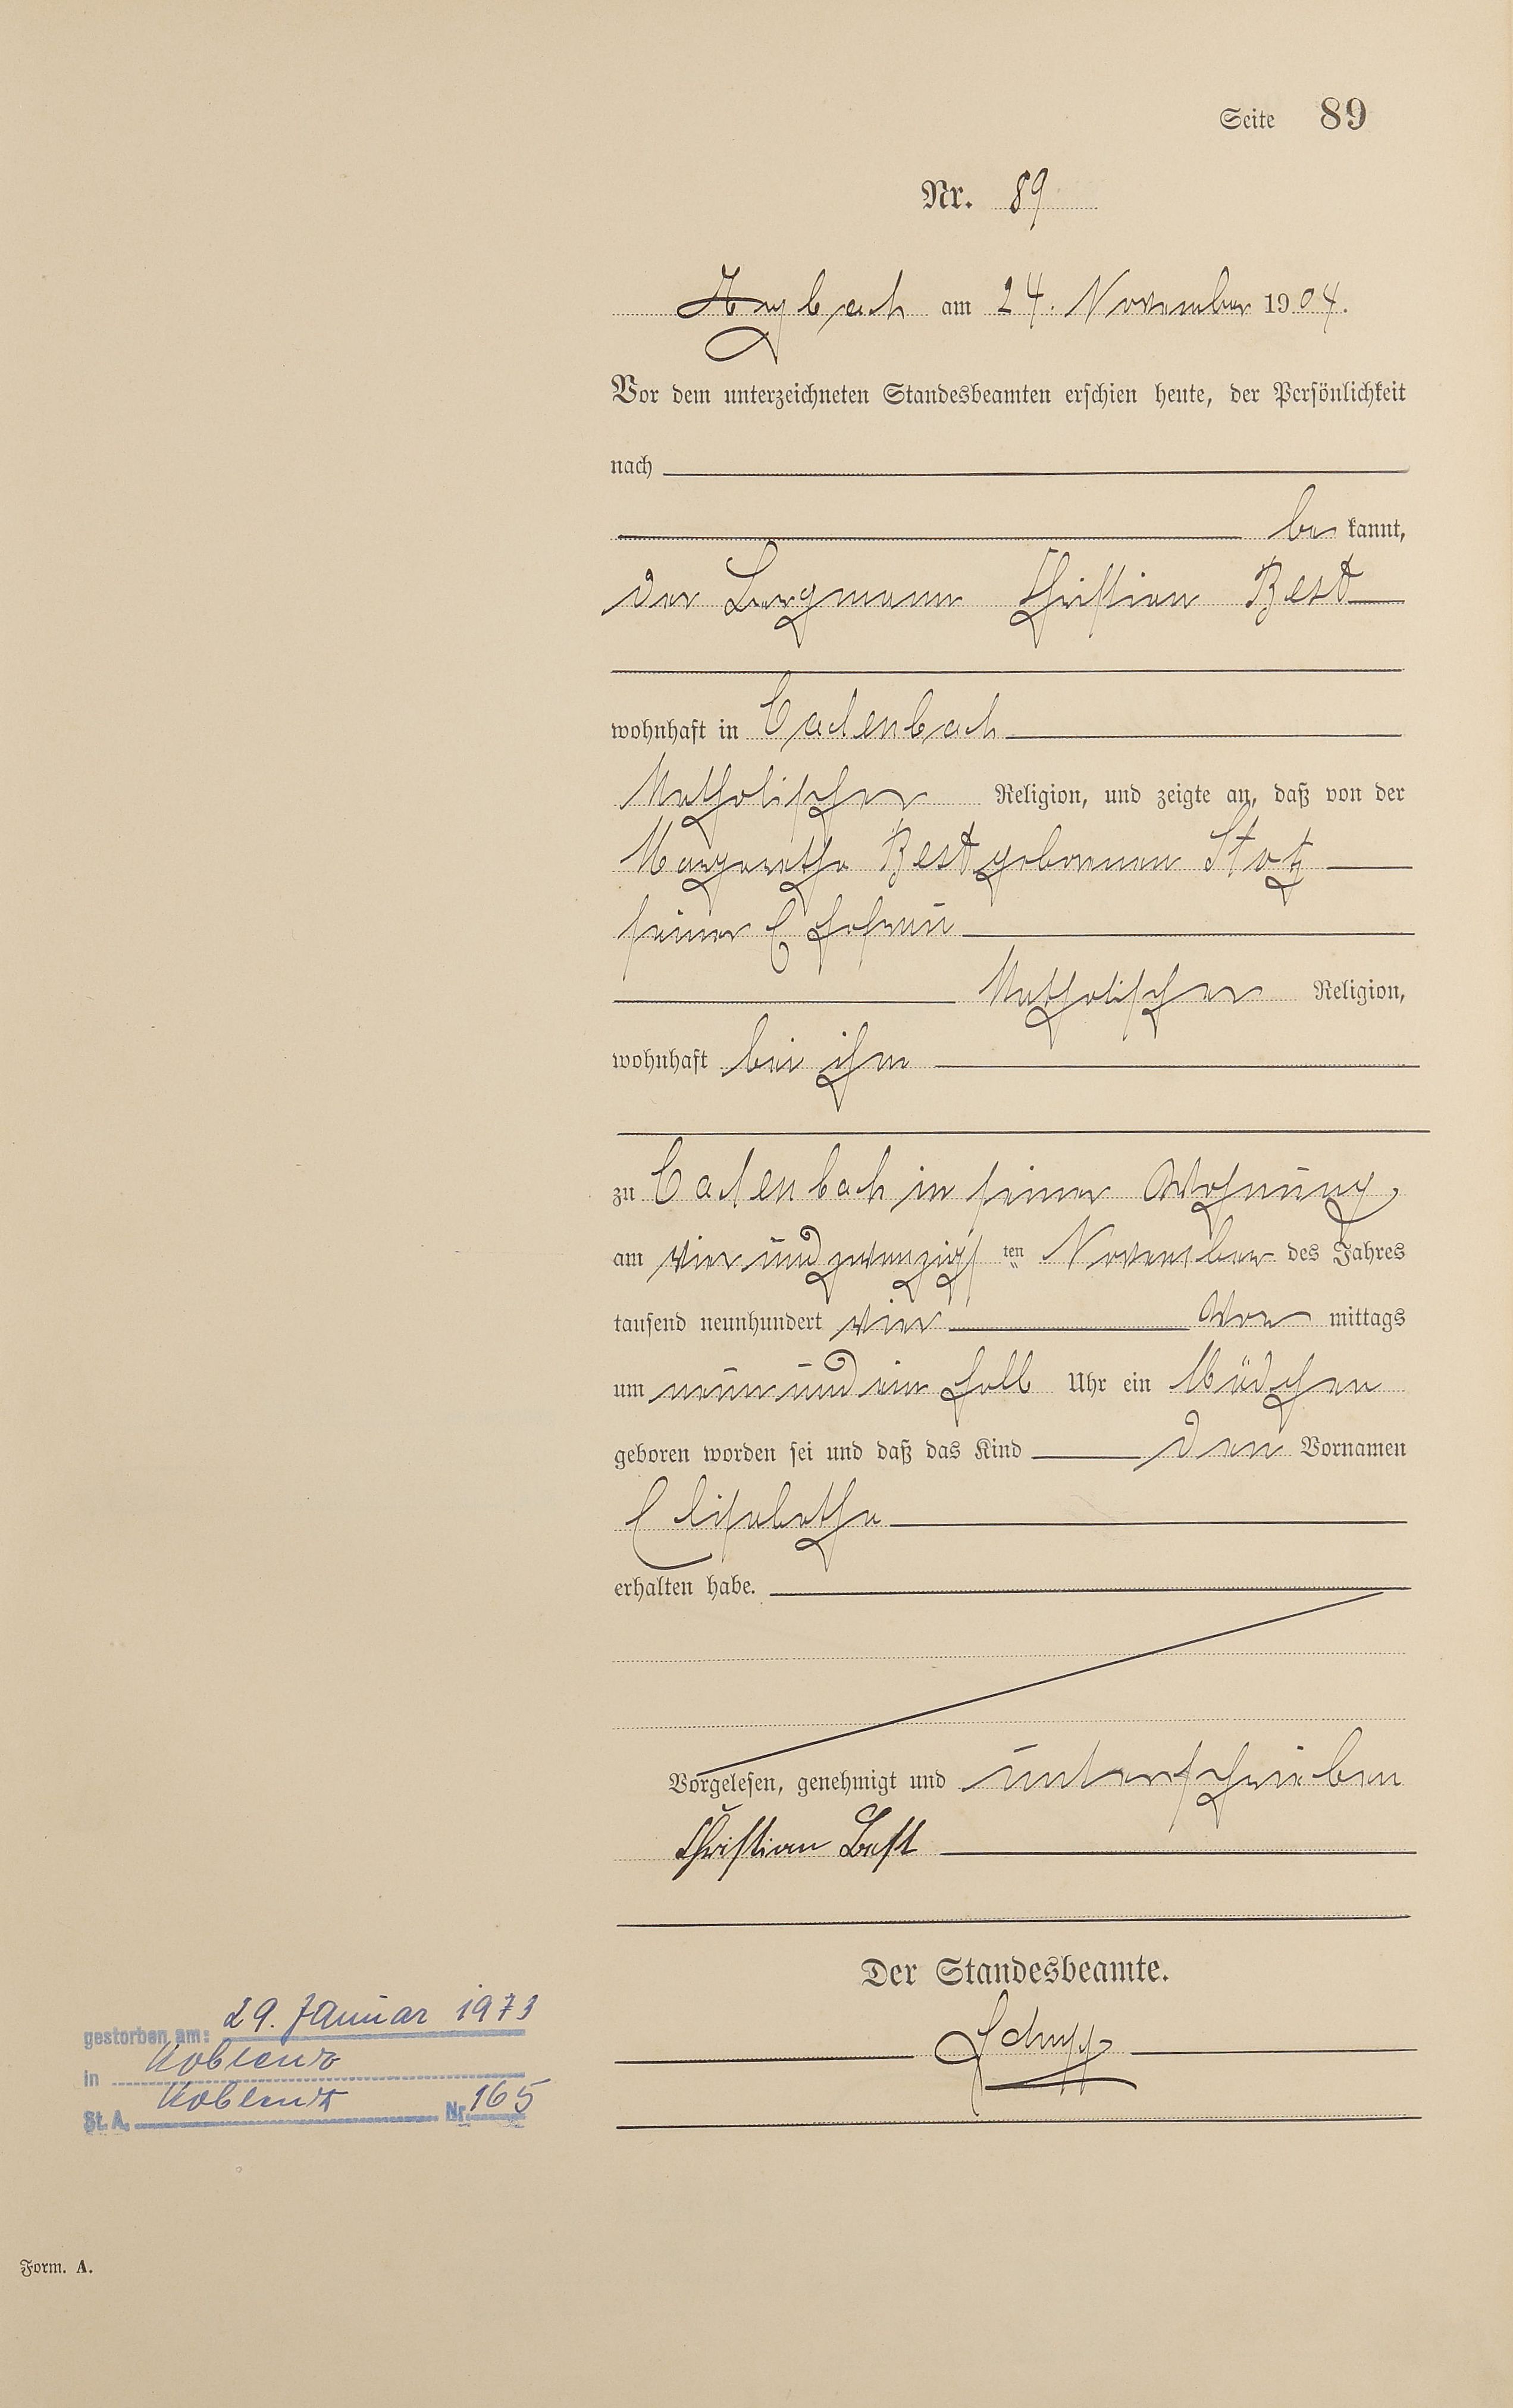 Seite 89
Nr. 89
Arzbach am 24. November 1904.
Vor dem unterzeichneten Standesbeamten erschien heute, der Persönlichkeit
nach
be kannt,
der Bergmann Christian Best
wohnhaft in Cadenbach
Katholischer Religion, und zeigte an, daß von der
Margaretha Best gebornen Stotz
seiner Ehefrau
Katholischer Religion,
wohnhaft bei ihm
zu Cadenbach in seiner Wohnung,
am vierundzwanzigsten November des Jahres
tausend neunhundert vier Vor mittags
um neunundein halb Uhr ein Mädchen
geboren worden sei und daß das Kind den Vornamen
Elisabetha
erhalten habe.
Vorgelesen, genehmigt und unterschrieben
Christian Best
Der Standesbeamte.
Schupp
gestorben am: 29. Januar 1973
in Koblenz
St. A. Koblenz Nr. 165
Form. A.